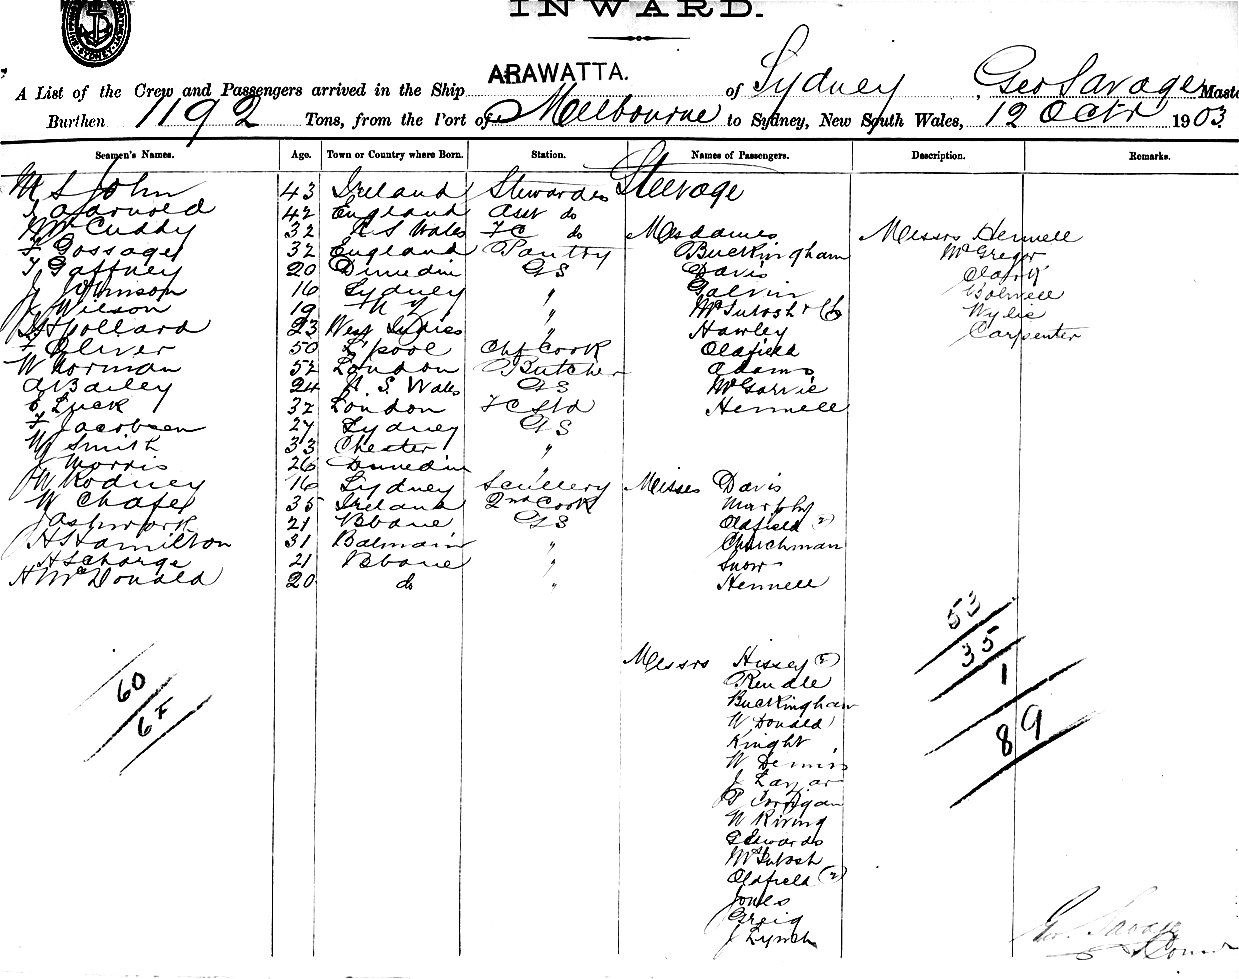 INWARD.
ARAWATTA.
A List of the Crew and Passengers arrived in the Ship of Sydney Geo Savage Maste
Burthen 1192 Tons, from the Port of Melbourne to Sydney, New South Wales, 12 Octr 1903.
Seamen's Names. Age. Town or Country where Born. Station. Names of Passengers. Description. Remarks.
M St John 43 Ireland Stewardes Steerage
42 England asst do
McCuddy 32 N S Wales FC do Mesdames Messrs Hennell
F Gossage 32 England Pantry Buckingham McGregor
T Gaffney 20 Dunedin GS Davis Clark
J Johnson 16 Sydney " Galvin
Wilson 19 N Z " McIntosh
Pollard 23 West Indies " Hawley Wylie
F Oliver 50 L'pool Chf Cook Oldfield Carpenter
W Norman 52 London Butcher Adams
A Bailey 24 N. S. Wales GS McGarvie
E Luck 32 London FC Std Hennell
F Jacobsen 27 Sydney GS
W Smith 33 Chester "
J Morris 26 Dunedin "
W Rodney 16 Sydney Scullery Misses Davis
W Chafe 35 Ireland 2nd Cook Murphy
J Ashwork 21 Bbane GS Oldfield (2)
H Hamilton 31 Balmain " Churchman
H Scharge 21 Bbane " Snow
H McDonald 20 do " Hennell
53
35
1
89
60
67
Messrs Hissey
Rendle
Buckingham
W Donald
Knight
W Dennis
J Lazar
P Corrigan
W Riving
Edwards
McIntosh
Oldfield (2)
Jones
Greig
J Lynch
Geo. Savage